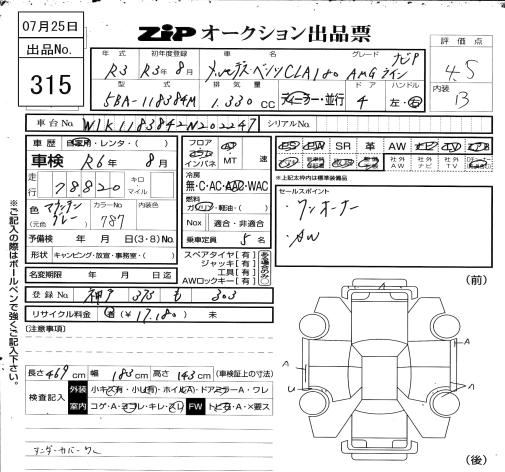 07月25日
出品No.
315
ZIP オークション出品票
評価点
4.5
内装
B
年式 初年度登録 車名 グレード
R3 R3年8月 メルセデス・ベンツCLA180 AMGライン ナビP
型式 排気量 ドア ハンドル
5BA-118384M 1.330cc ディーラー・並行 4 左・右
車台No. W1K1183842N202247 シリアルNo.
車歴 自家用・レンタ・( )
車検 R6年 8月
走行 78820 キロ マイル
色 マウンテングレー
(元色)
カラーNo 787
内装色
予備検 年 月 日(3・8)No.
形状 キャンピング・放宣・事務室・( )
名変期限 年 月 日迄
登録No. 神戸 375 も 303
リサイクル料金 済(¥17.180) 未
フロア インパネ MT 速
冷房
無・C・AC・AAC・WAC
燃料
ガソリン・軽油・( )
Nox 適合・非適合
乗車定員 5名
スペアタイヤ[有]
ジャッキ[有]
工具[有]
AWロックキー[有]
PS PW SR 革 AW ナビ TV
社外AW 社外ナビ 社外TV
※上記太枠内は標準装備品
セールスポイント
・ワンオーナー
・AW
[注意事項]
長さ469cm 幅183cm 高さ143cm (車検証上の寸法)
検査記入
外装 小キズ有・小凹有・ホイルA・ドアミラーA・ワレ
室内 コゲA・ヨゴレ・キレ・スレ FW トビ石・A・×要ス
アンダーカバーワレ
※ご記入の際はボールペンで強くご記入下さい。
(前)
A
A
A
U
(後)